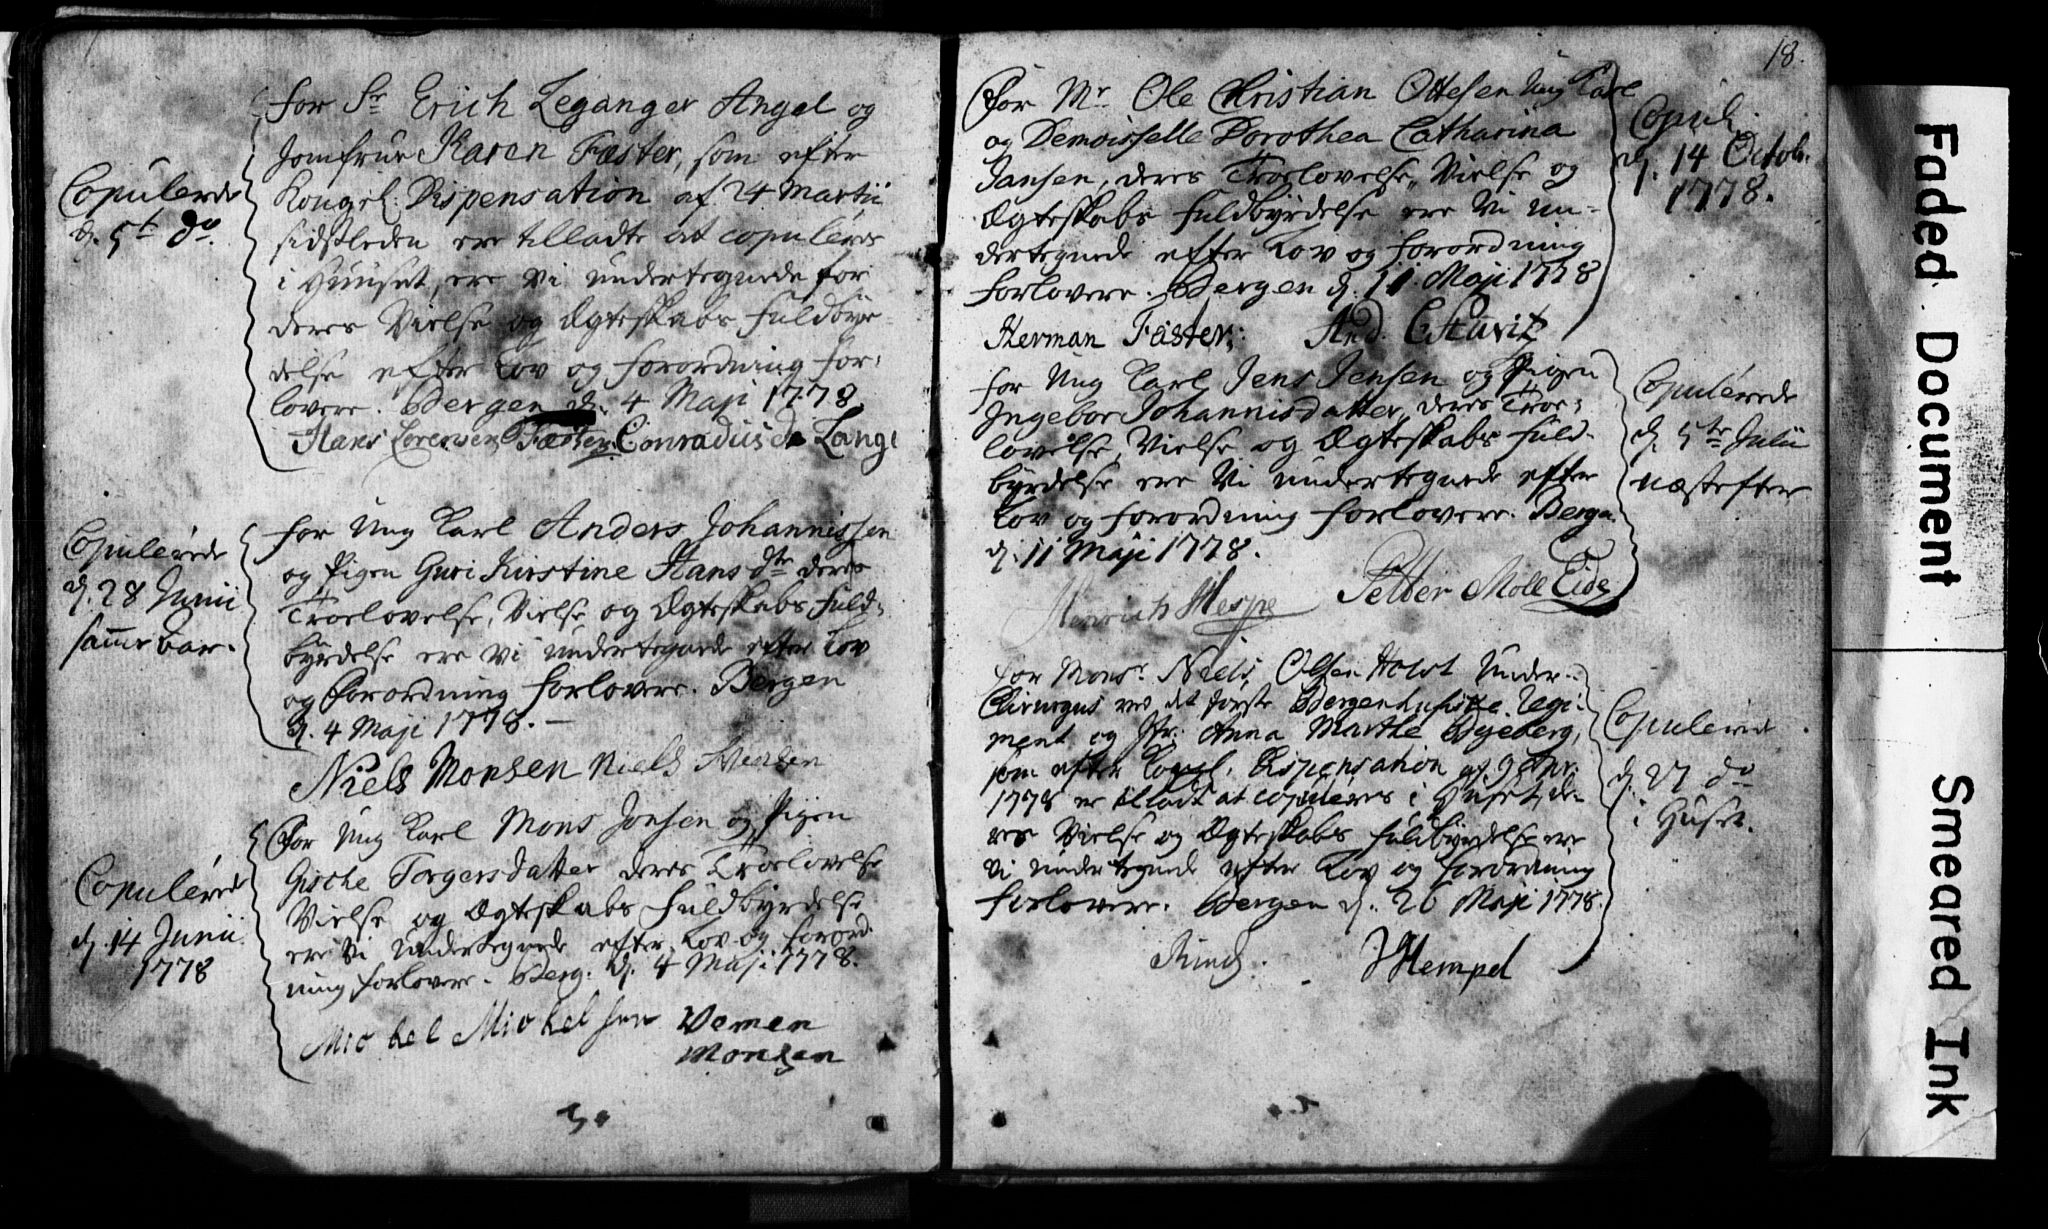 For Sr Erich Leganger Angel og
Jomfrue Karen Fæster, som efter
Kongel: Dispensation af 24 Martii
sidstleden ere tilladte at copuleres
i Huuset, ere vi undertegnede for
deres Vielse og Ægteskabs Fuldbyr-
delse efter Lov og Forordning For-
lovere. Bergen d. 4 Maji 1778.
Hans Lorensen Fæster Conradus de Lange
Copulerede
d. 5t do.
For Ung Karl Anders Johannissen
og Pigen Guri Kirstine Hans dtr deres
Troelovelse, Vielse og Ægteskabs Fuld-
byrdelse ere vi undertegnede efter Lov
og Forordning Forlovere. Bergen
d. 4 Maji 1778. —
Niels Monsen Niels Iversen
Copulerede
d. 28 Junii
samme Aar.
For Ung Karl Mons Jonsen og Pigen
Gische Torgersdatter deres Troelovelse
Vielse og Ægteskabs Fuldbyrdelse
ere Vi Undertegnede efter Lov og Forord-
ning Forlovere. Berg. d. 4 Maji 1778.
Michel Michelsen Vemen
Monsen
Copulerede
d. 14 Junii
1778
18.
For Mr Ole Christian Ottesen Ung Karl
og Demoisselle Dorothea Catharina
Jansen, deres Troelovelse, Vielse og
Ægteskabs Fuldbyrdelse ere Vi un-
dertegnede efter Lov og Forordning
Forlovere. Bergen d. 11 Maji 1778
Herman Fäster. And.
Copul.
d. 14 Octobr.
1778.
For Ung Karl Jens Jensen og Pigen
Ingebor Johannisdatter, deres Troe-
lovelse, Vielse og Ægteskabs Fuld-
byrdelse ere Vi undertegnede efter
Lov og Forordning Forlovere. Bergen
d. 11 Maji 1778.
Hinrich Petter Moll Eide
Copulerede
d. 5te Julii
næstefter
For Monsr. Niels Olsen Holst Under-
Chirurgus ved det første Bergenhusiske Regi-
ment og Jfr. Anna Marthe Byeberg,
som efter Kongl. Dispensation af 9
1778 er tilladt at copuleres i Huset, de-
res Vielse og Ægteskabs Fuldbyrdelse ere
Vi undertegnede efter Lov og Forordning
Forlovere. Bergen d. 26 Maji 1778.
Hempel
Copulerede
d. 27 do
i Huset.
Faded Document
Smeared Ink